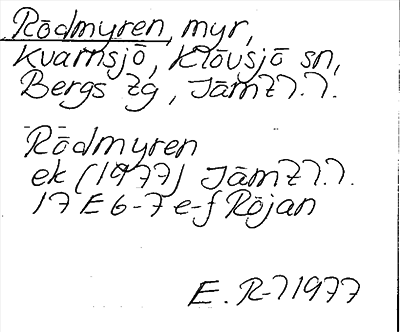 Rödmyren, myr,
Kvarnsjö, Klövsjö sn,
Bergs tg, Jämtl.
Rödmyren
ek (1977) Jämtl.
17 E 6-7 e-f Röjan
E. R-l 1977